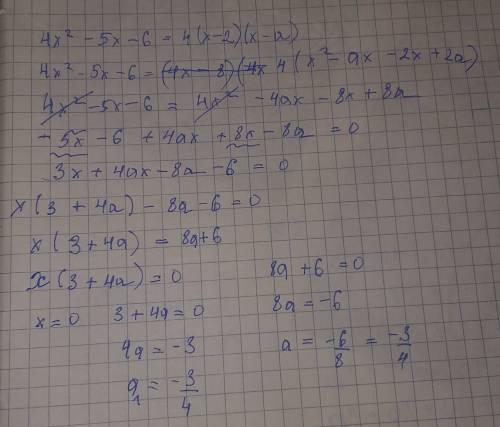 4x² - 5x - 6 = 4(x-2)(x-a)
4x² - 5x - 6 = (4x - 8)(4x 4(x² - ax - 2x + 2a)
4x² - 5x - 6 = 4x² - 4ax - 8x + 8a
- 5x - 6 + 4ax + 8x - 8a = 0
3x + 4ax - 8a - 6 = 0
x(3 + 4a) - 8a - 6 = 0
x(3 + 4a) = 8a+6
x(3 + 4a) = 0
8a + 6 = 0
x = 0 3 + 4a = 0
8a = -6
4a = -3
a = -6/8 = -3/4
a₁ = -3/4